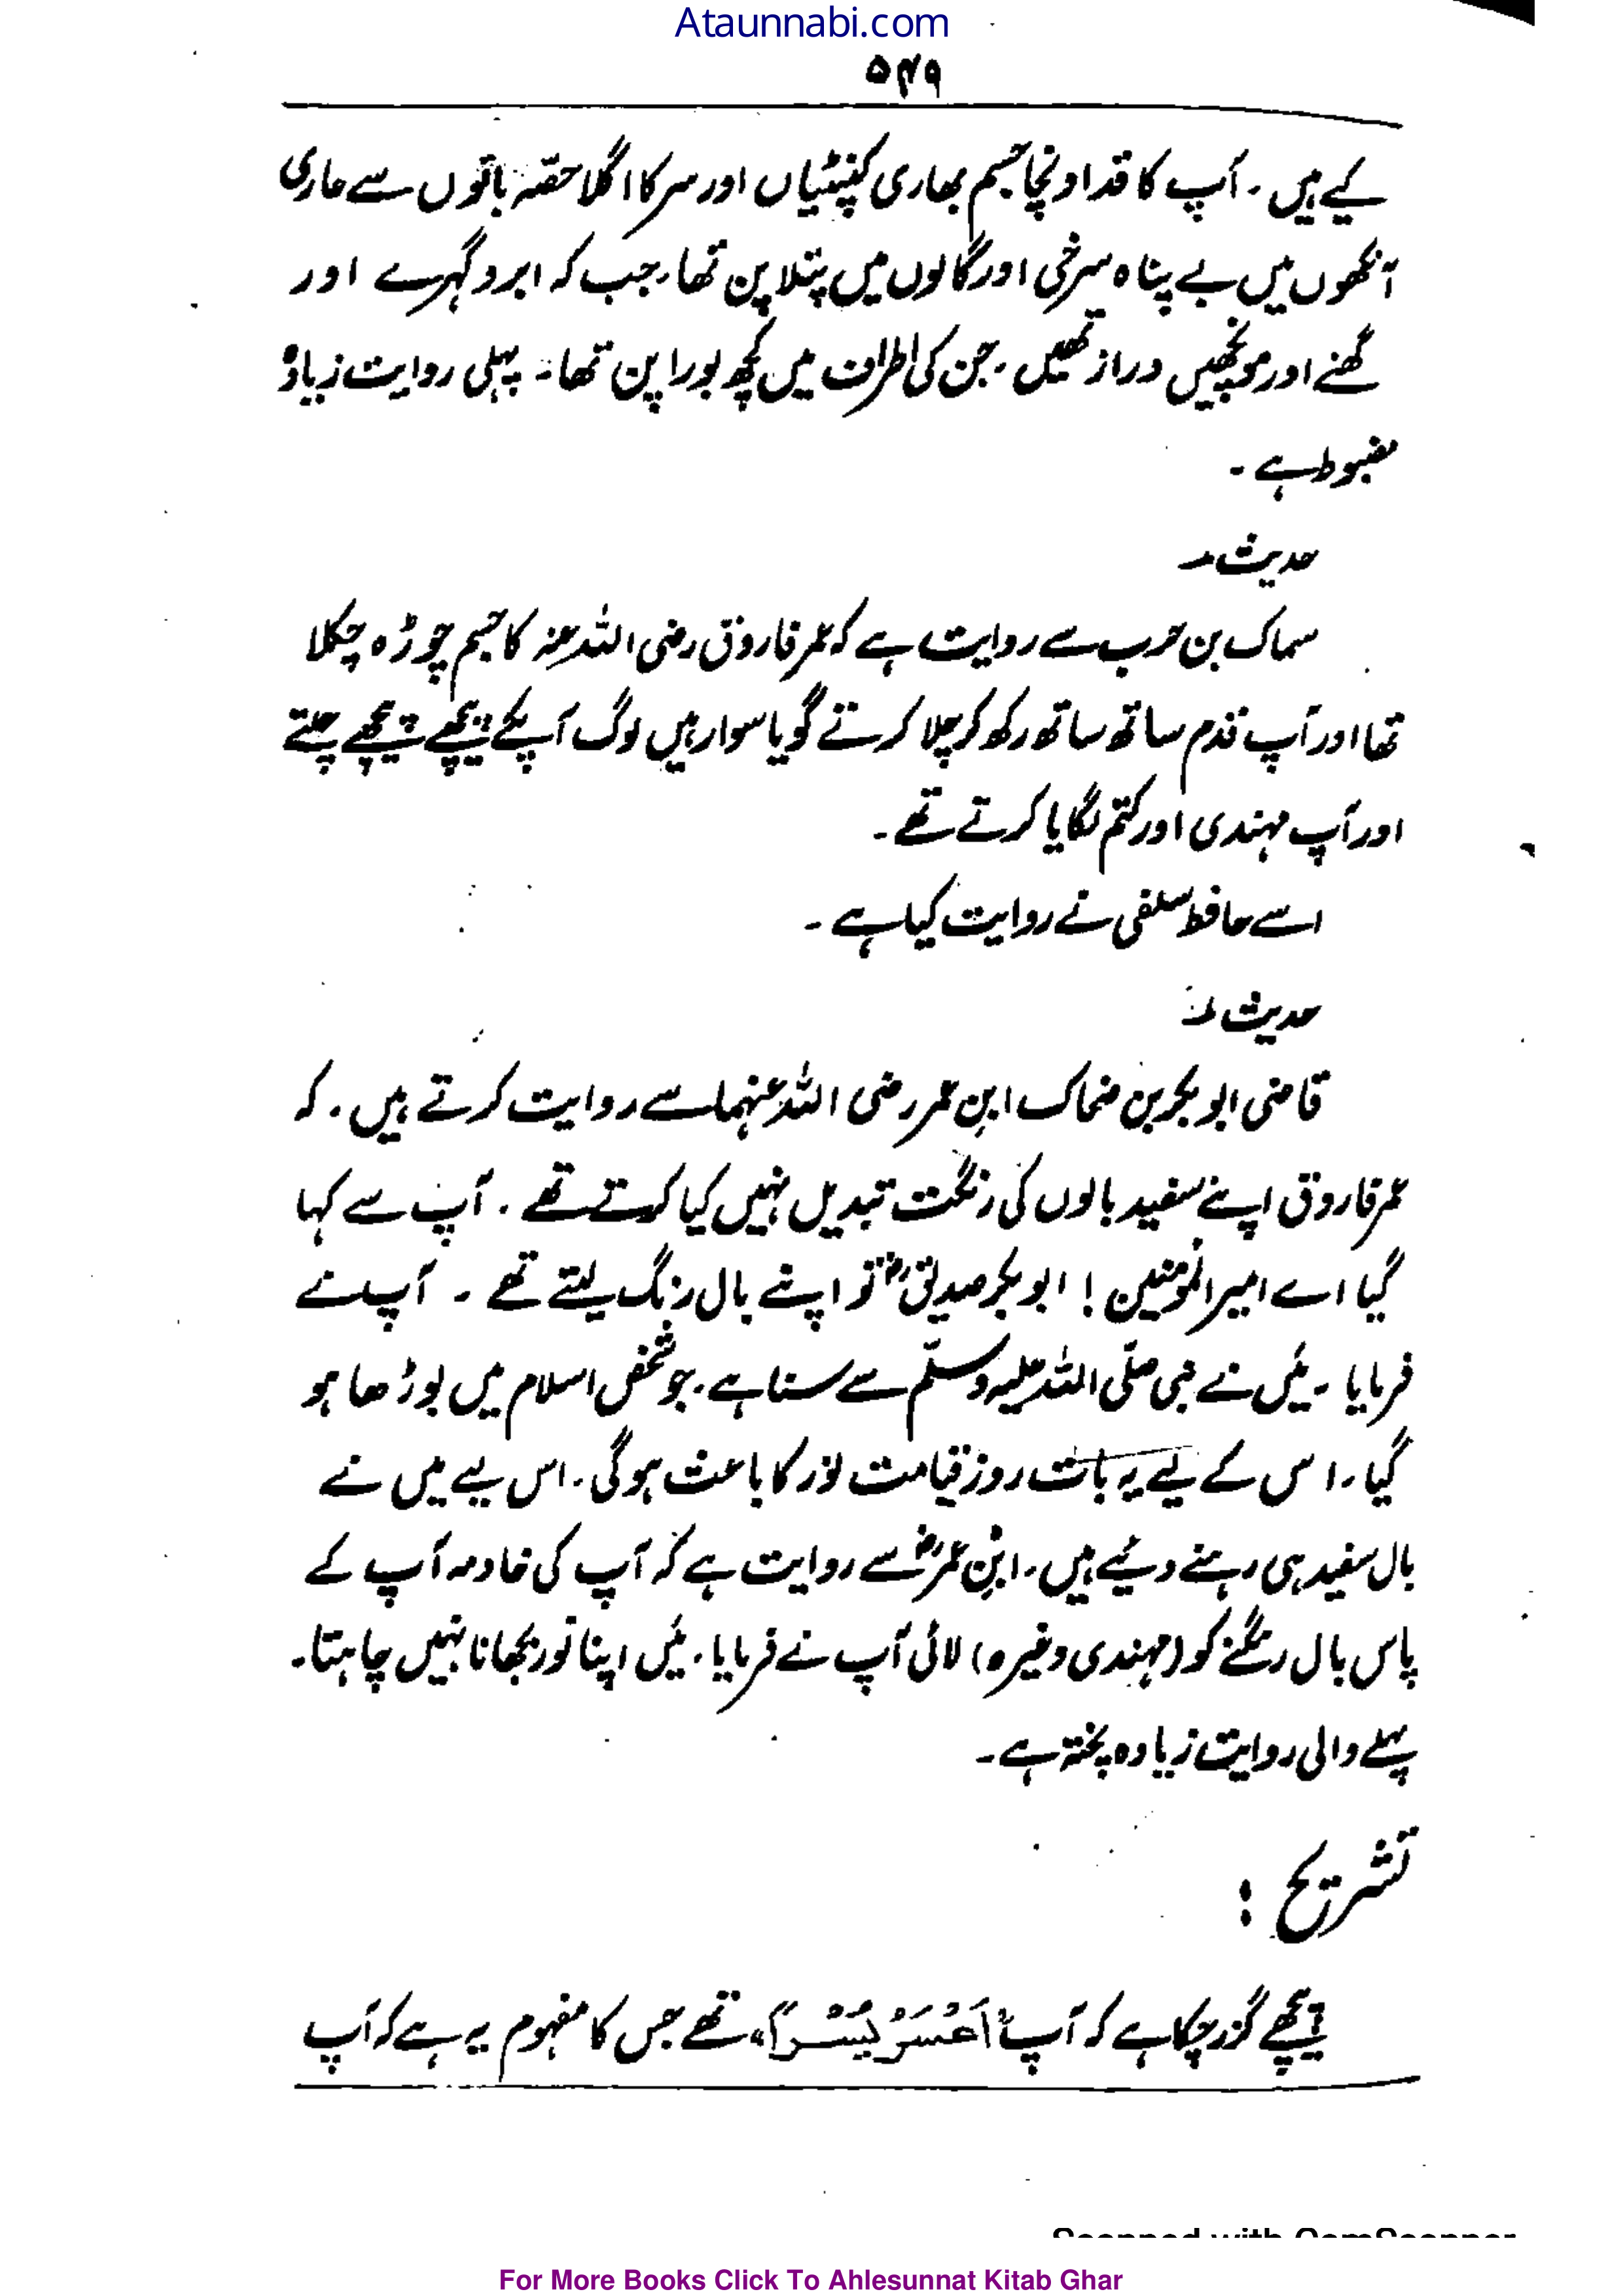 Ataunnabi.com
۵۴۹
کیے ہیں۔ آپ کا قد اونچا جسم بھاری کنپٹیاں اور سر کا اگلا حصّہ بالوں سے عاری
آنکھوں میں بے پناہ سرخی اور گالوں میں پتلا پن تھا، جب کہ ابرو گہرے اور
گھنے اور مونچھیں دراز تھیں، جن کی اطراف میں کچھ بورا پن تھا۔ پہلی روایت زیادہ
مضبوط ہے۔
حدیث
سماک بن حرب سے روایت ہے کہ عمر فاروق رضی اللہ عنہ کا جسم چوڑہ چکلا
تھا اور آپ قدم ساتھ ساتھ رکھ کر چلا کرتے گویا سوار ہیں لوگ آپکے پیچھے پیچھے چلتے
اور آپ مہندی اور کتم لگایا کرتے تھے۔
اسے حافظ سلفی نے روایت کیا ہے۔
حدیث
قاضی ابو بکر بن ضحاک ابن عمر رضی اللہ عنہما سے روایت کرتے ہیں۔ کہ
عمر فاروق اپنے سفید بالوں کی رنگت تبدیل نہیں کیا کرتے تھے۔ آپ سے کہا
گیا اے امیر المومنین! ابو بکر صدیقؓ تو اپنے بال رنگ لیتے تھے۔ آپ نے
فرمایا۔ میں نے نبی صلّی اللہ علیہ وسلّم سے سنا ہے، جو شخص اسلام میں بوڑھا ہو
گیا، اس کے لیے یہ بات روز قیامت نور کا باعث ہوگی۔ اس لیے میں نے
بال سفید ہی رہنے دیئے ہیں۔ ابن عمرؓ سے روایت ہے کہ آپ کی خادمہ آپ کے
پاس بال رنگنے کو (مہندی وغیرہ) لائی آپ نے فرمایا، میں اپنا نور بجھانا نہیں چاہتا۔
پہلے والی روایت زیادہ پختہ ہے۔
تشریح:
پیچھے گزر چکا ہے کہ آپ "اَعْسَرَ يَسَرًا" تھے جس کا مفہوم یہ ہے کہ آپ
Scanned with CamScanner
For More Books Click To Ahlesunnat Kitab Ghar